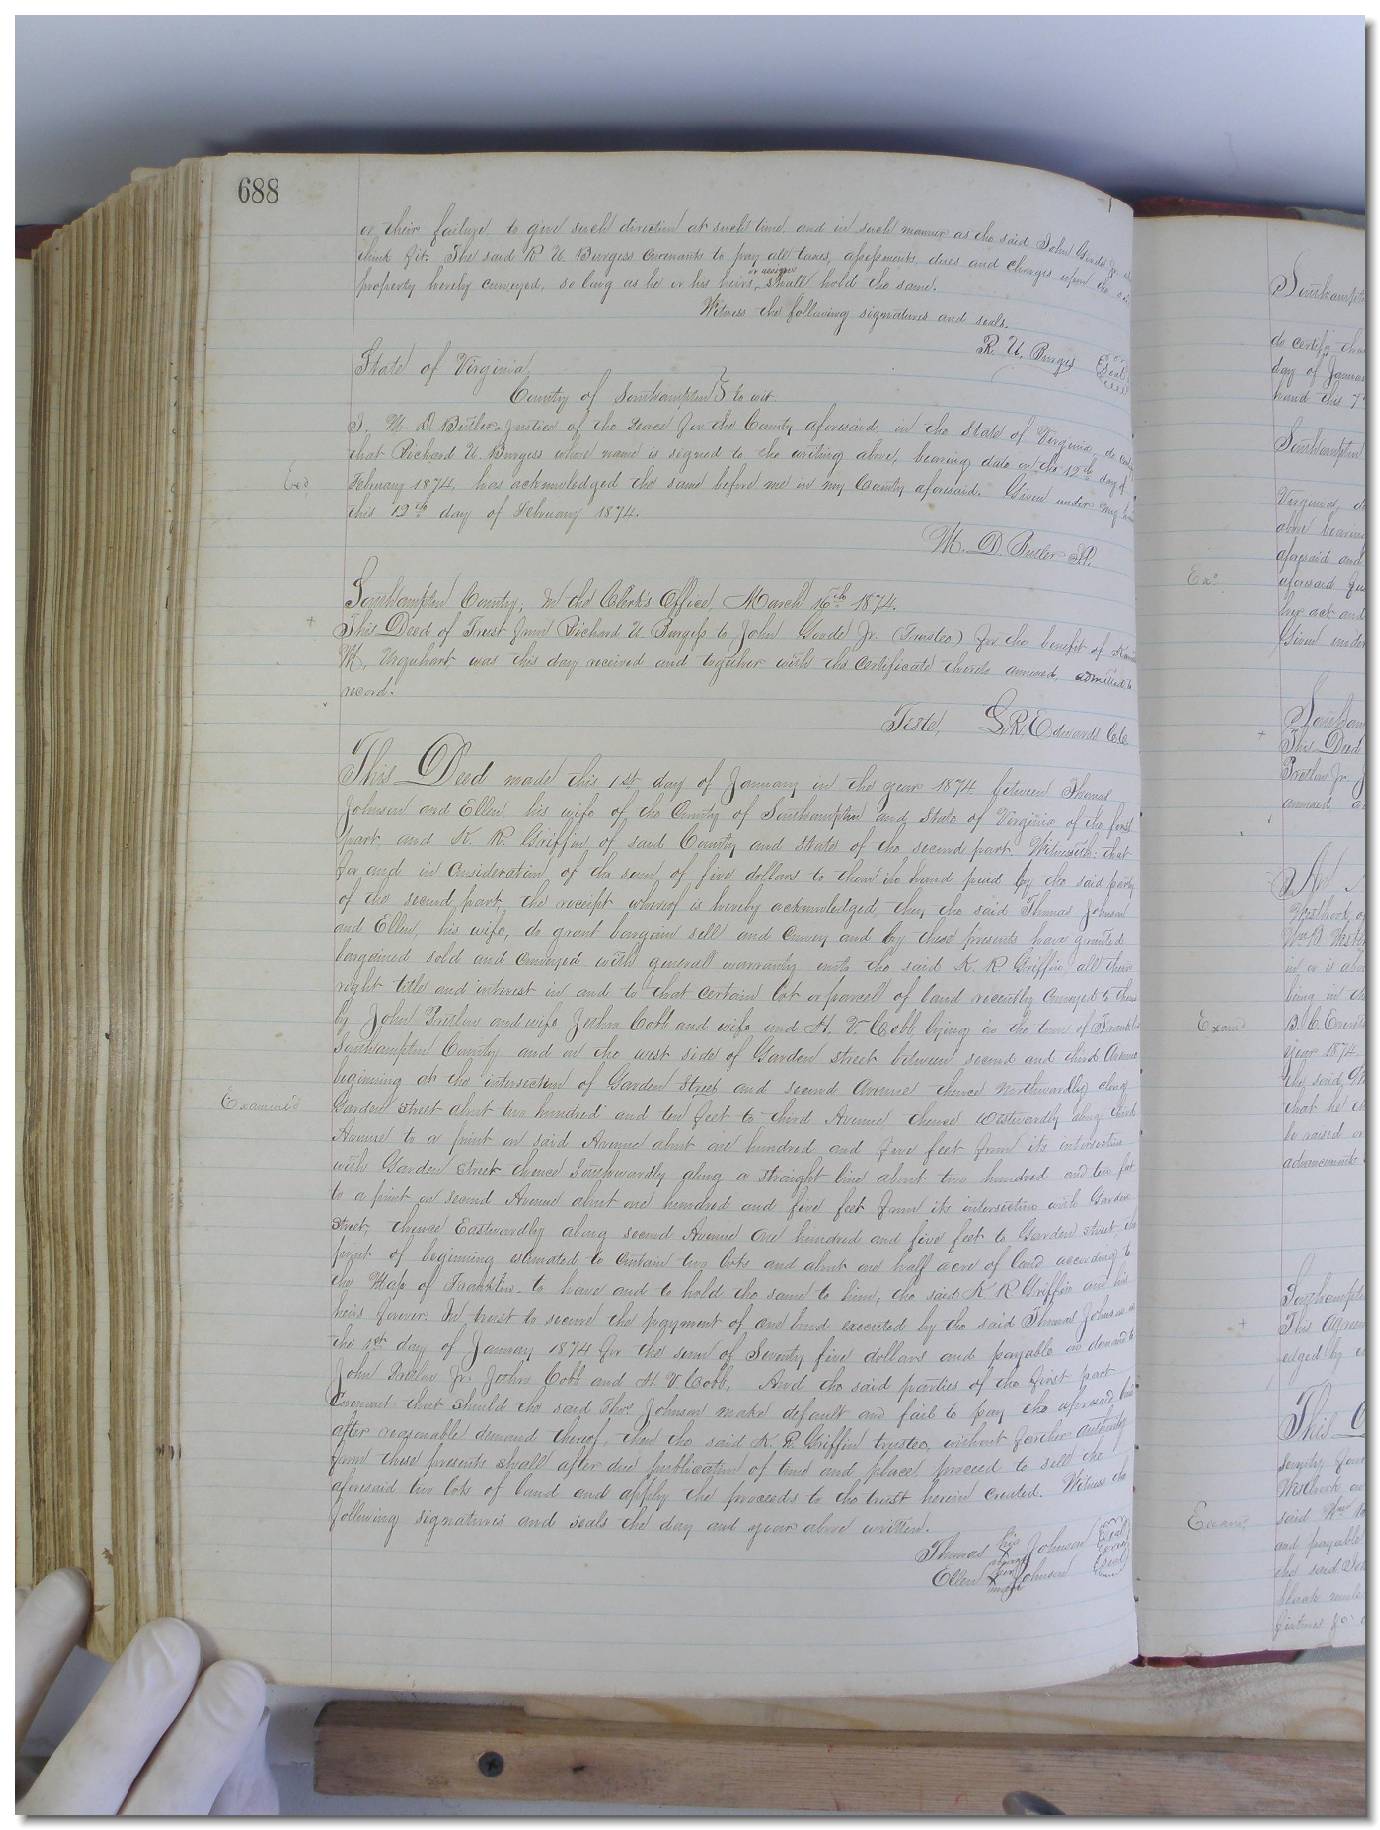 688
or their failure to give such direction at such time and in such manner as the said John Goode Jr
think fit. The said R U. Burgess covenants to pay all taxes, assessments dues and charges upon the
or assigns
property hereby conveyed, so long as he or his heirs, shall hold the same.
Witness the following signatures and seals.
R. U. Burgess
State of Virginia
County of Southampton to wit
I. M. D Butler Justice of the Peace for the County aforesaid, in the State of Virginia, do
that Richard U. Burgess whose name is signed to the writing above, bearing date on the 12th day of
Exd
February 1874, has acknowledged the same before me in my County aforesaid. Given under my
this 12th day of February 1874.
M. D. Butler J.P.
Southampton County, In the Clerk's Office, March 16th 1874.
+
This Deed of Trust from Richard U Burgess to John Goode Jr. (Trustee) for the benefit of
W. Urquhart was this day received and together with the certificate thereto annexed, admitted to
record.
Teste, L. R. Edwards C.C.
This Deed made this 1st day of January in the year 1874 between Thomas
Johnson and Ellen his wife of the County of Southampton and State of Virginia of the first
part and K. R. Griffin of said County and State of the second part. Witnesseth: that
for and in consideration of the sum of five dollars to them in hand paid by the said party
of the second part, the receipt whereof is hereby acknowledged, they the said Thomas Johnson
and Ellen, his wife, do grant bargain sell and convey and by these presents have granted
bargained sold and conveyed with general warranty unto the said K. R Griffin all their
right title and interest in and to that certain lot or parcel of land recently conveyed to them
by John Pretlow and wife Joshua Cobb and wife and H. V. Cobb lying in the town of Franklin
Southampton County and on the west side of Garden Street between second and third Avenue
beginning at the intersection of Garden Street and second Avenue thence Northwardly along
Examined
Garden Street about two hundred and ten feet to third Avenue thence westwardly along third
Avenue to a point on said Avenue about one hundred and five feet from its intersection
with Garden Street thence Southwardly along a straight line about two hundred and ten feet
to a point on second Avenue about one hundred and five feet from its intersection with Garden
Street, thence Eastwardly along second Avenue one hundred and five feet to Garden Street, the
point of beginning estimated to contain two lots and about one half acre of land according to
the Map of Franklin. to have and to hold the same to him, the said K R Griffin and his
heirs forever. In trust to secure the payment of one bond executed by the said Thomas Johnson
the 1st day of January 1874 for the sum of Seventy five dollars and payable on demand to
John Pretlow Jr. Joshua Cobb and H. V. Cobb. And the said parties of the first part
Covenant that should the said Thos. Johnson make default and fail to pay the aforesaid
after reasonable demand thereof, then the said K. R. Griffin trustee, without further authority
from these presents shall after due publication of time and place proceed to sell the
aforesaid two lots of land and apply the proceeds to the trust herein created. Witness the
following signatures and seals the day and year above written.
his
Thomas X Johnson
mark
her
Ellen X Johnson
mark
Southampton
do certify
day of January
hand this 7
Southampton
Virginia, do
above bearing
Exd
aforesaid and
aforesaid
her act and
Given under
+
This Deed
Pretlow Jr.
annexed
being in
Examd
year 1874
the said
that he
be raised
advancements
+
This agreement
edged by
This
seventy four
Westbrook
said Wm
and payable
the said